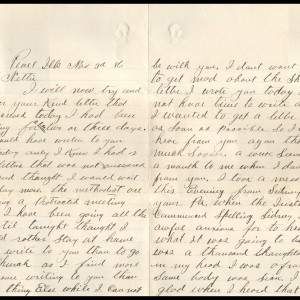 Pearl Ills Nov 3rd 16
Nettie
I will now try and
your kind letter that
today I had been
ing for two or three days
would have written to you
I knew I had a
letter that was not answered
and thought I would wait
day more. the methodist are
a Protracted meeting
I have been going all the
til tonight thought I
rather stay at home
write to you than to go
church as I find more
writing to you than
thing Else while I Can not
be with you. I dont want
to get mad about the
letter I wrote you today I
not have time to write
I wanted to get a letter
as soon as Possible So I
hear from you again
much Sooner a week Seems
a month to me when I dont
from you. I took a
this Evening from Sidney
your Pa, when the
Commenced Spelling Sidney
awful anxious for to
what It was going to
was a thousand thoughts
in my head I was afraid
Some body was Sick
glad when I heard that